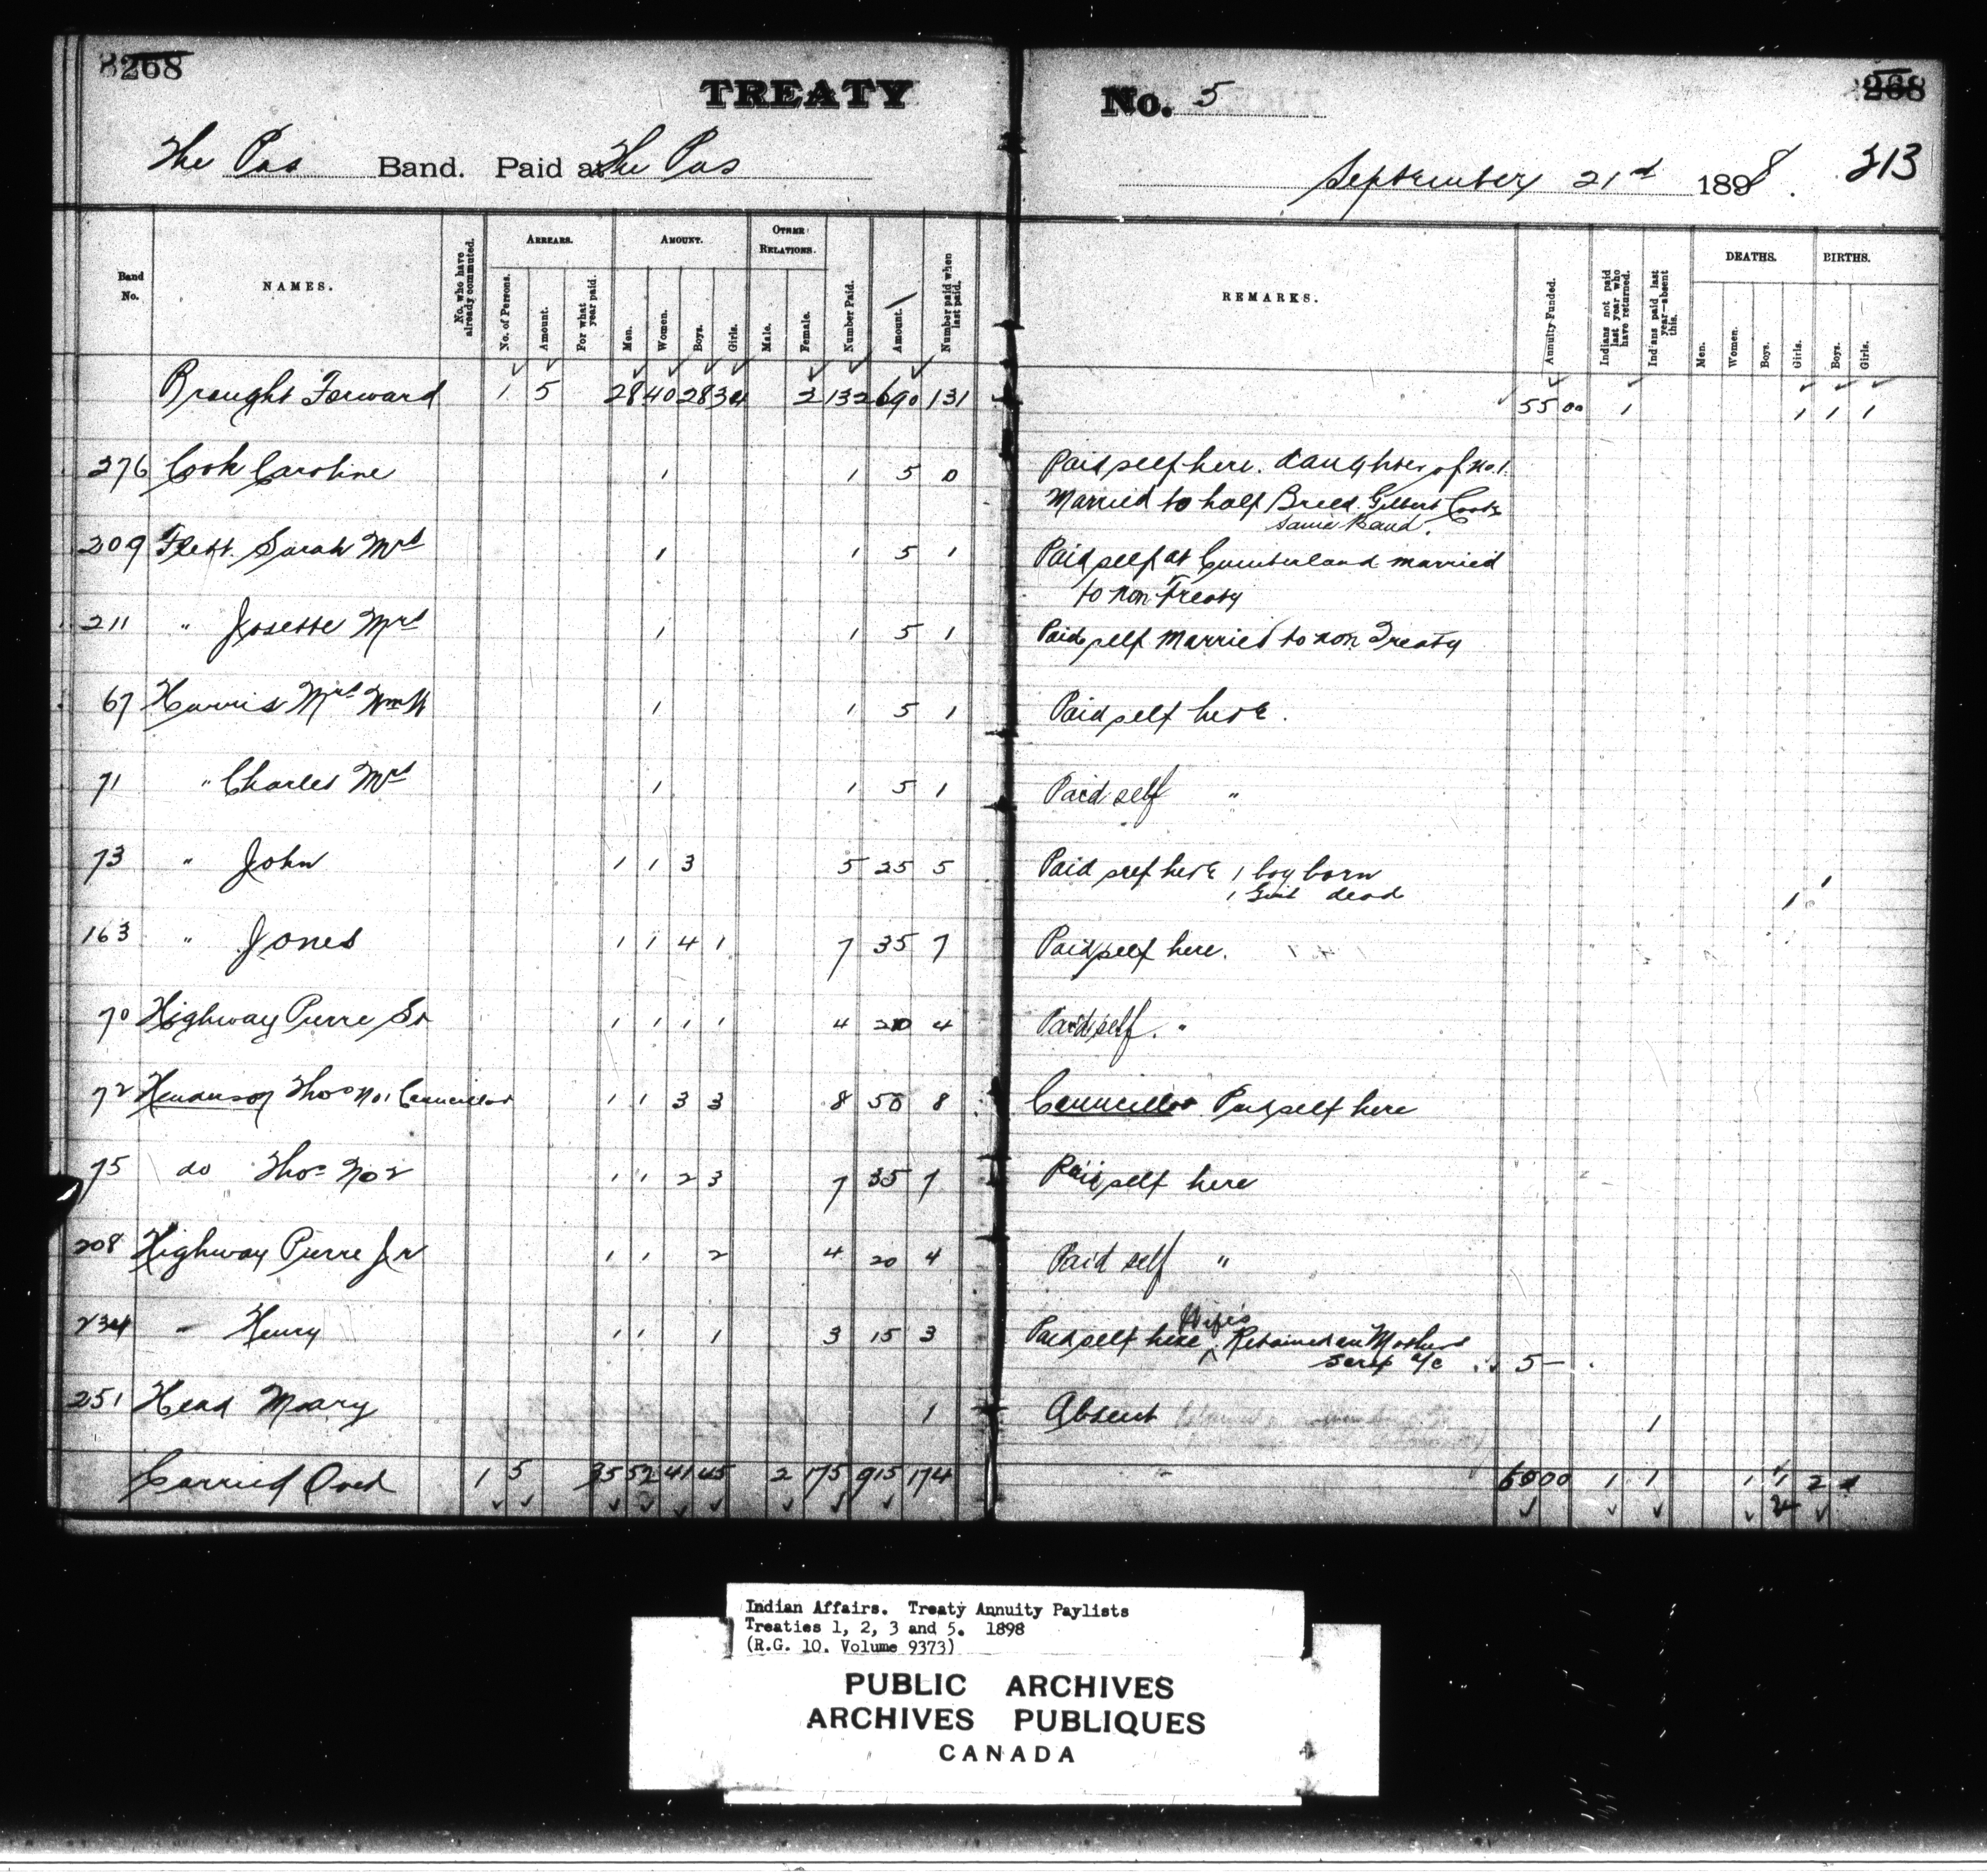 268
TREATY No. 5
268
The Pas Band. Paid at The Pas
September 21st 1898.
213
Band No.
NAMES.
No. who have already commuted.
ARREARS.
No. of Persons.
Amount.
For what year paid.
AMOUNT.
Men.
Women.
Boys.
Girls.
OTHER RELATIONS.
Male.
Female.
Number Paid.
Amount.
Number paid when last paid.
REMARKS.
Annuity Funded.
Indians not paid last year who have returned.
Indians paid last year—absent this.
DEATHS.
Men.
Women.
Boys.
Girls.
BIRTHS.
Boys.
Girls.
Brought Forward 1 5 28 40 28 34 2 132 690 131 55 00 1 1 1 1
276 Cook Caroline 1 1 5 0 Paid self here. daughter of No. 1.
Married to half Breed. Gilbert Cook
same Band.
209 Flett. Sarah Mrs 1 1 5 1 Paid self at Cumberland married
to non Treaty
211 " Josette Mrs 1 1 5 1 Paid self Married to non Treaty
67 Harris Mrs Wm 1 1 5 1 Paid self here.
71 " Charles Mrs 1 1 5 1 Paid self "
73 " John 1 1 3 5 25 5 Paid self here 1 boy born 1
1 Girl dead 1
163 " Jones 1 1 4 1 7 35 7 Paid self here.
70 Highway Pierre Sr 1 1 1 1 4 20 4 Paid self. "
72 Henderson Thos No 1 Councillor 1 1 3 3 8 50 8 Councillor Paid self here
75 do Thos No 2 1 1 2 3 7 35 7 Paid self here
208 Highway Pierre Jr 1 1 2 4 20 4 Paid self "
234 " Henry 1 1 1 3 15 3 Paid self here Wife's Retained on Mothers
scrip a/c 5 —
251 Head Mary 1 Absent 1
Carried Over 1 5 35 52 41 45 2 175 915 174 60 00 1 1 1 1 2 1
2
Indian Affairs. Treaty Annuity Paylists
Treaties 1, 2, 3 and 5. 1898
(R.G. 10. Volume 9373)
PUBLIC ARCHIVES
ARCHIVES PUBLIQUES
CANADA